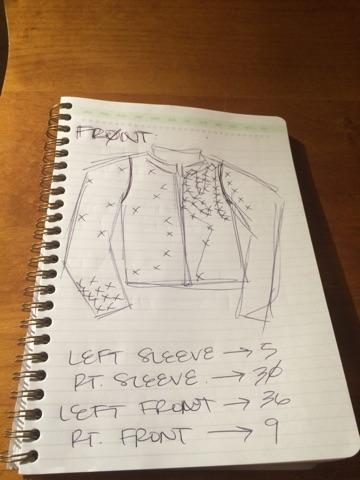 FRONT.
LEFT SLEEVE → 5
RT. SLEEVE. → 30
LEFT FRONT → 36
RT. FRONT → 9